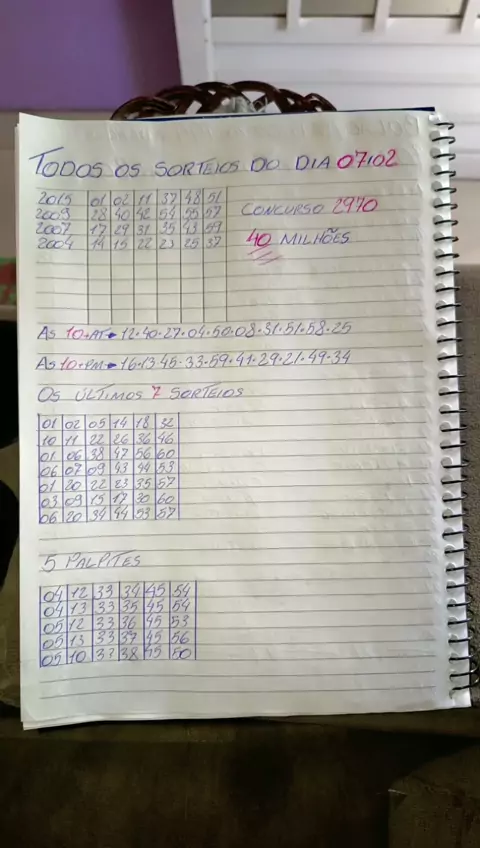 TODOS OS SORTEIOS DO DIA 07/02
2015 01 02 11 37 48 51
2009 28 40 42 54 55 57
2007 17 29 31 35 43 59
2004 14 15 22 23 25 37
CONCURSO 2970
40 MILHÕES
AS 10+AT→12.40.27.04.50.08.31.51.58.25
AS 10+PM→16.13.45.33.59.41.29.21.49.34
OS ÚLTIMOS 7 SORTEIOS
01 02 05 14 18 32
10 11 22 26 36 46
01 06 38 47 56 60
06 07 09 43 44 53
01 20 22 23 35 57
03 09 15 17 30 60
06 20 34 44 53 57
5 PALPITES
04 12 33 34 45 54
04 13 33 35 45 54
05 12 33 36 45 53
05 13 33 37 45 56
05 10 37 38 45 50